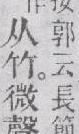 按郭云長節
从竹。微聲